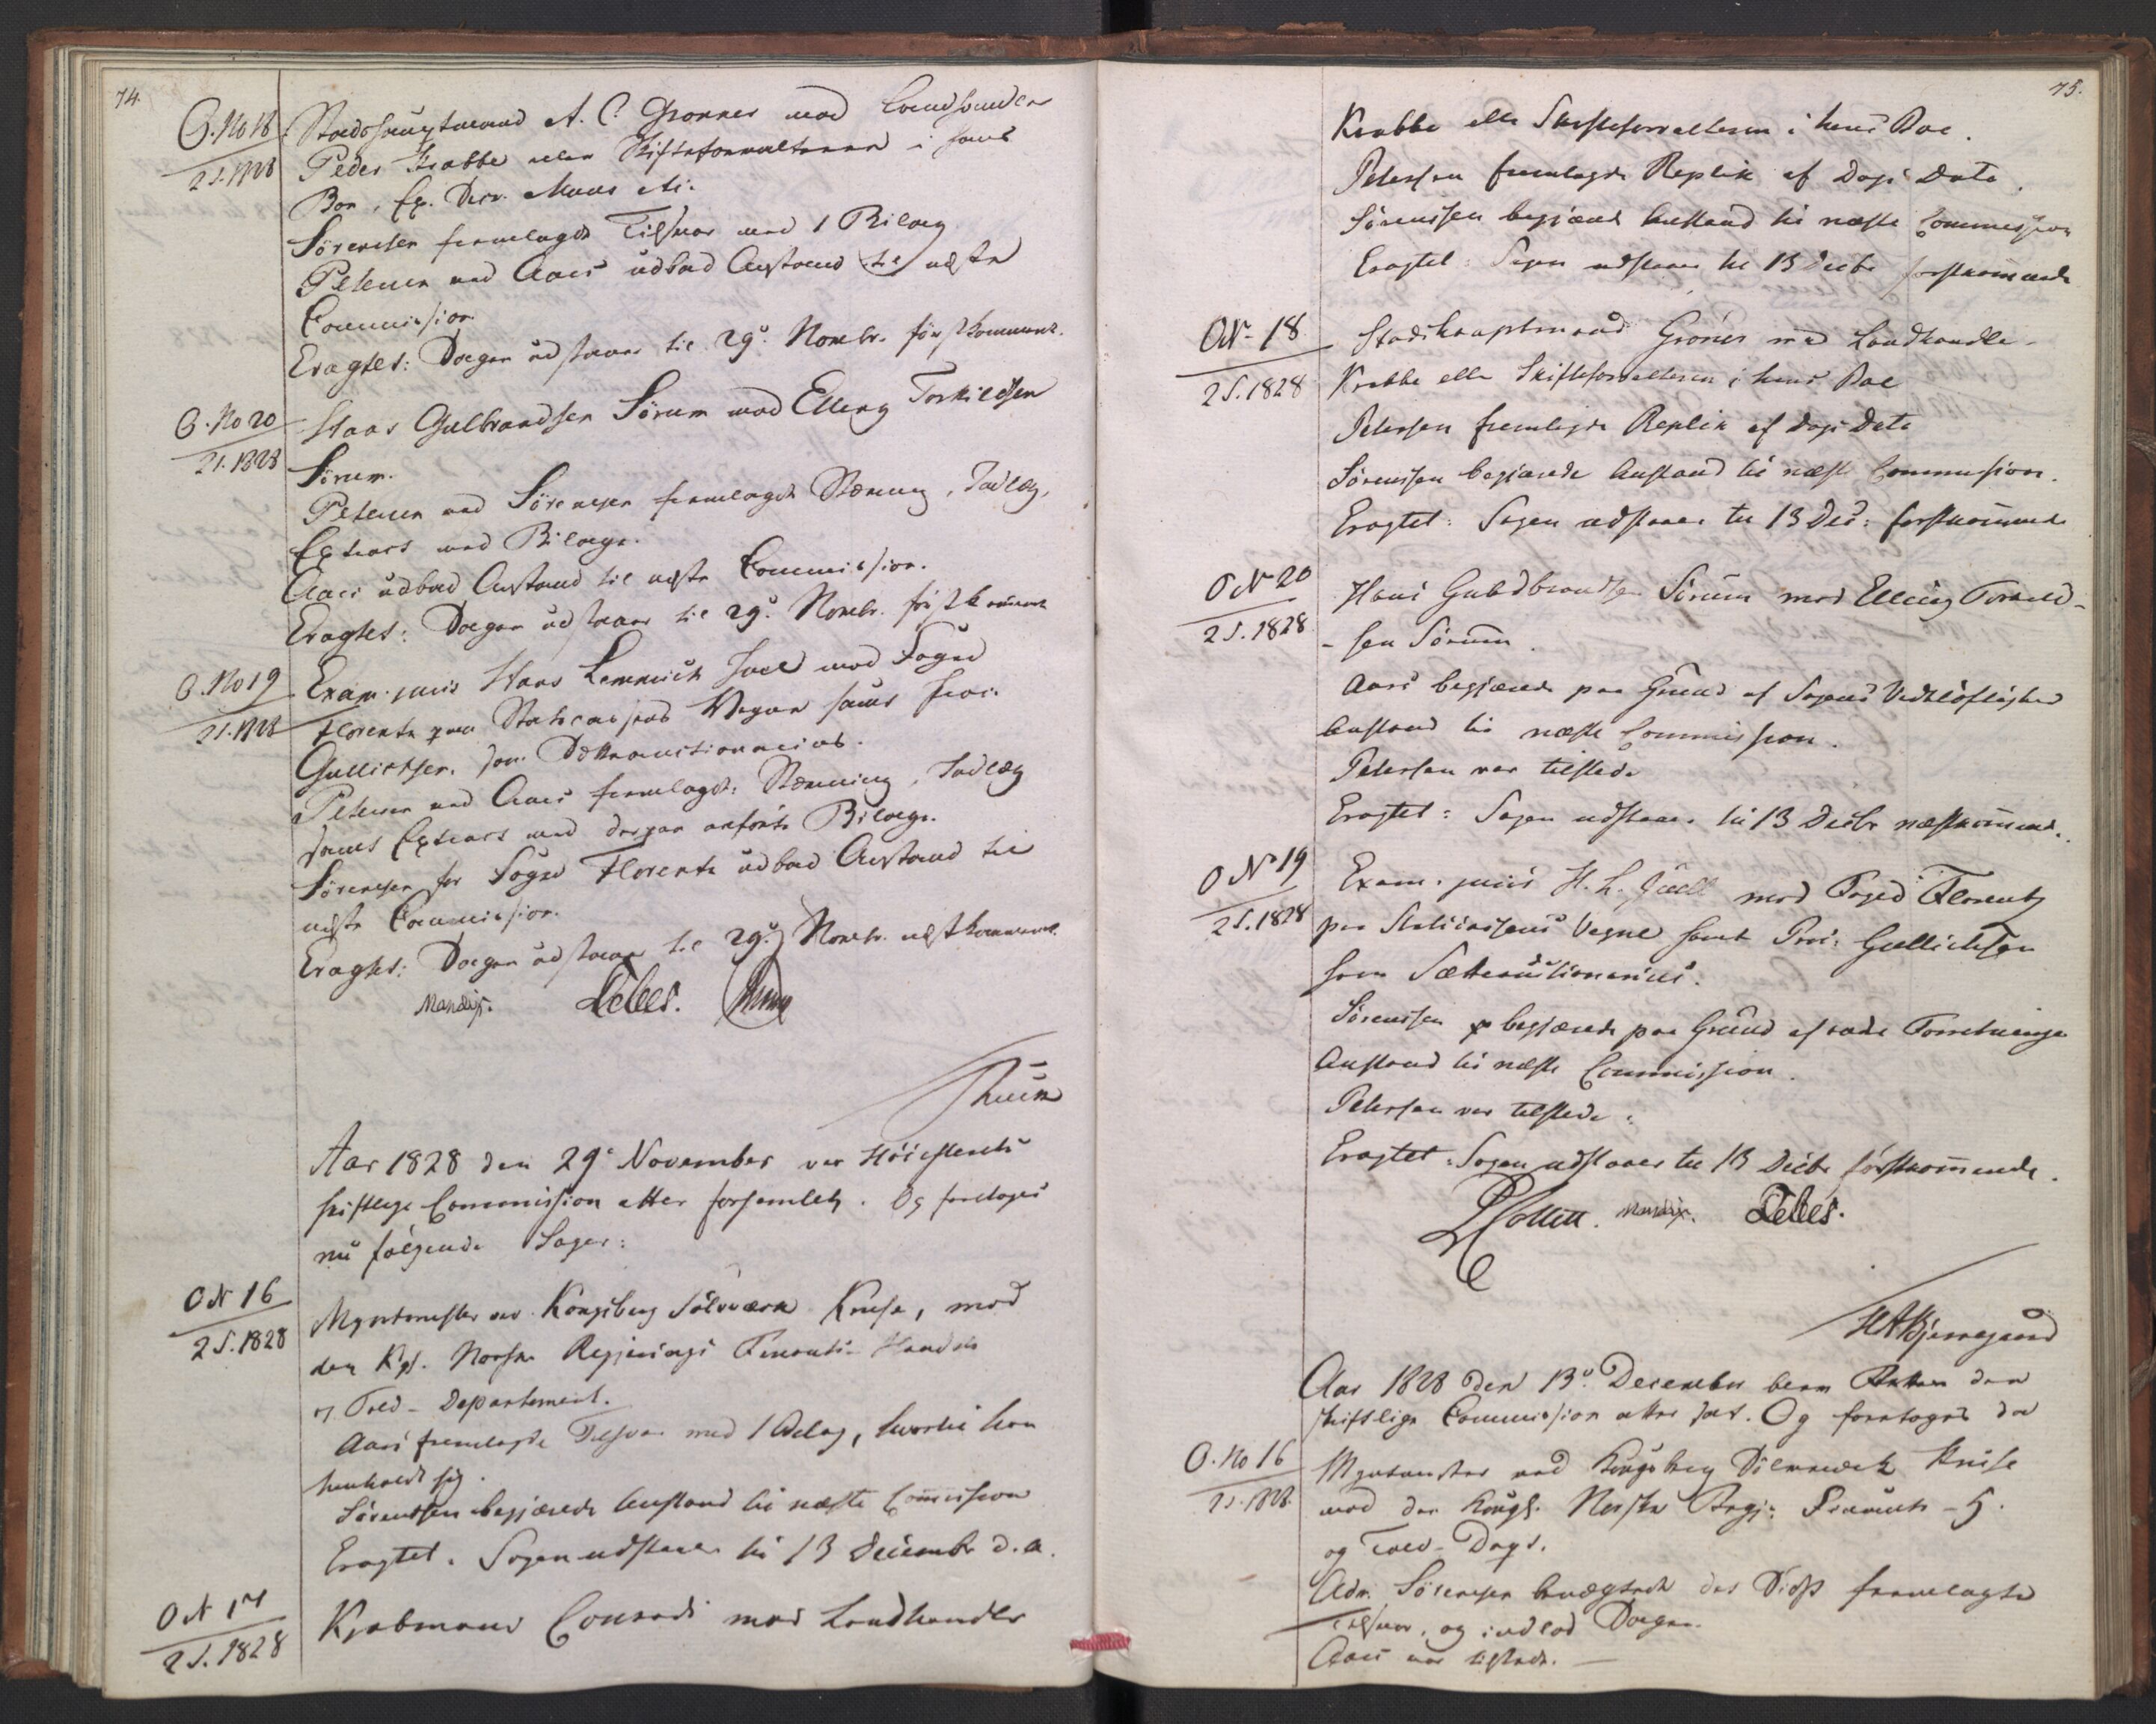 74.
O. No 18
2 S. 1828
Stadshauptmand A. C. Grønner mod Landhandler
Peder Krabbe eller Skifteforvalteren i hans
Boe,
Sørensen fremlagde Tilsvar med 1 Bilag
Petersen ved Aars udbad Anstand til næste
Commission.
Eragtet: Sagen udstaaer til 29de Novembr. førstkommende.
O. No 20
2 S. 1828
Hans Gulbrandsen Sørum mod Elling Torkildsen
Sørum.
Petersen ved Sørensen fremlagde Stævning, Indlæg,
Extract med Bilage.
Aars udbad Anstand til næste Commission.
Eragtet: Sagen udstaaer til 29de Novembr. førstkommende
O. No 19
2 S. 1828
Exam. juris Hans Lemmich Juel mod Foged
Florentz paa Statscassens Vegne samt Proc.
Gullichsen, som Sætteauctionarius.
Petersen ved Aars fremlagde: Stævning, Indlæg
samt Extract med derpaa anførte Bilage.
Sørensen for Foged Florentz udbad Anstand til
næste Commission.
Eragtet: Sagen udstaaer til 29de Novembr. næstkommende.
Mandix. Debes.
Aar 1828 den 29de November var Höiesterets
skriftlige Commission atter forsamlet. Og foretoges
nu følgende Sager:
O N 16
2 S. 1828
Myntmester ved Kongsberg Sölvværk Kruse, mod
den Kgl. Norske Regjerings Finants- Handels
og Told-Departement.
Aars fremlagde Tilsvar med 1 Bilag, hvortil han
henholdt sig.
Sörensen begjærede Anstand til næste Commission
Eragtet. Sagen udstaaer til 13 Decembr d. A.
O N 17
2 S. 1828
Kjøbmand Conradi mod Landhandler
75.
Krabbe eller Skifteforvalteren i hans Boe.
Petersen fremlagde Replik af Dags Dato.
Sörensen begjærede Anstand til næste Commission
Eragtet: Sagen udstaaer til 13 Decbr førstkommende
O N 18
2 S. 1828
Stadshauptmand Gröner mod Landhandler
Krabbe eller Skifteforvalteren i hans Boe
Petersen fremlagde Replik af Dags Dato
Sörensen begjærede Anstand til næste Commission.
Eragtet: Sagen udstaaer til 13 Dec: førstkommende
O No 20
2 S. 1828
Hans Guldbrandsen Sörum mod Elling Torkild-
-sen Sörum.
Aars begjærede paa Grund af Sagens Vidtlöftighed
Anstand til næste Commission.
Petersen var tilstede
Eragtet: Sagen udstaaer til 13 Decbr næstkommende.
O No 19
2 S. 1828
Exam. juris H. L. Juell mod Foged Florentz
paa Statscassens Vegne samt Proc: Gullichsen
som Sætteauctionarius.
Sörensen begjærede paa Grund af Forretninger
Anstand til næste Commission.
Petersen var tilstede.
Eragtet: Sagen udstaaer til 13 Decbr førstkommende.
Collett. Mandix. Debes.
HABjerregaard
Aar 1828 den 13de December blev den
skriftlige Commission atter sat. Og foretoges da
O. No 16
2 S. 1828.
Myntmester ved Kongsberg Sølvværk Kruse
mod den Kongl. Norske Regj: Finants - H.
og Told-Dept.
Adv. Sørensen benægtede det Sidst fremlagte
Tilsvar, og indlod Sagen.
Aars var tilstede. —